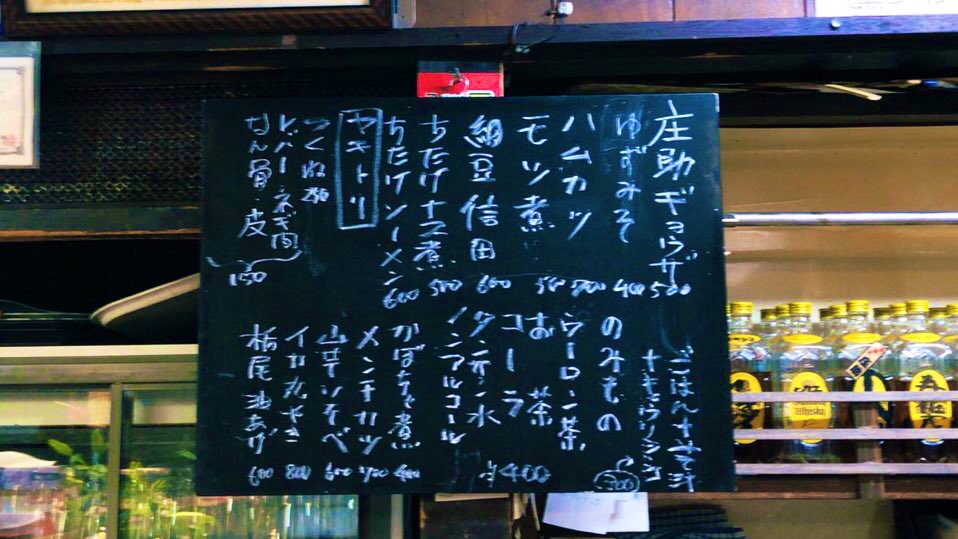 庄助ギョウザ 500
ゆずみそ 400
ハムカツ 700
モツ煮 500
納豆信田 600
ちたけナス煮 500
ちたけソーメン 600
ヤキトリ
つくね 250
レバー ネギ肉
なん骨・皮
150
ごはん+みそ汁
+キュウリ
のみもの
ウーロン茶
お茶
コーラ
タンサン水
ノンアルコール
¥400
かぼちゃ煮 400
メンチカツ 700
イカ丸やき 800
栃尾油あげ 600
Whisky